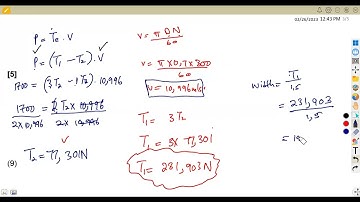 02/26/2023 12:43 PM
P = Te . V
P = (T₁ - T₂) . V
[5]
1700 = (3T₂ - 1T₂) . 10,996
1700 = 2T₂ × 10,996
2 × 10,996 2 × 10,996
(9) T₂ = 77,301N
V = π D N
60
V = π × 0,7 × 300
60
V = 10,996 m/s
T₁ = 3T₂
T₁ = 3 × 77,301
T₁ = 231,903N
Width = T₁
1,5
= 231,903
1,5